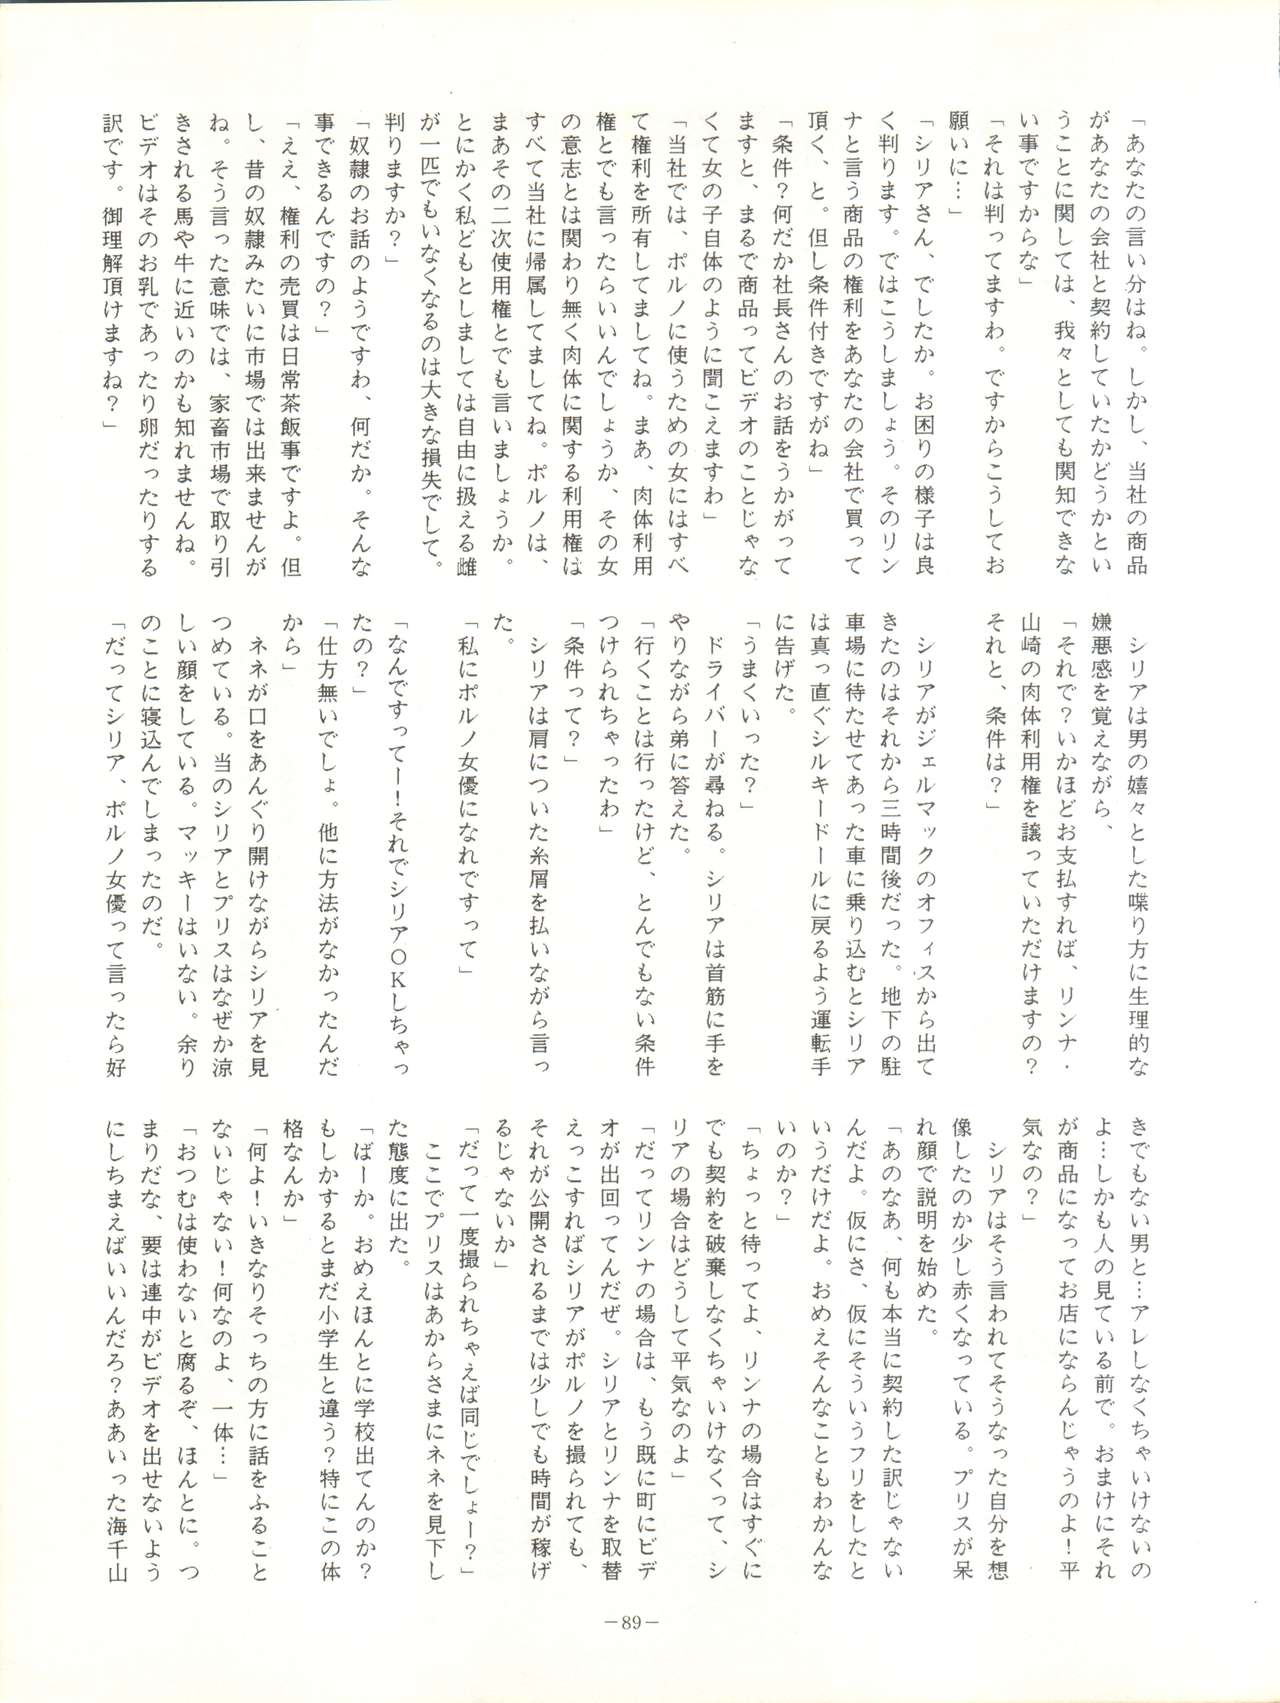 「あなたの言い分はね。しかし、当社の商品
があなたの会社と契約していたかどうかとい
うことに関しては、我々としても関知できな
い事ですからな」
「それは判ってますわ。ですからこうしてお
願いに…」
「シリアさん、でしたか。お困りの様子は良
く判ります。ではこうしましょう。そのリン
ナと言う商品の権利をあなたの会社で買って
頂く、と。但し条件付きですがね」
「条件？何だか社長さんのお話をうかがって
ますと、まるで商品ってビデオのことじゃな
くて女の子自体のように聞こえますわ」
「当社では、ポルノに使うための女にはすべ
て権利を所有してましてね。まあ、肉体利用
権とでも言ったらいいんでしょうか、その女
の意志とは関わり無く肉体に関する利用権は
すべて当社に帰属してましてね。ポルノは、
まあその二次使用権とでも言いましょうか。
とにかく私どもとしましては自由に扱える雌
が一匹でもいなくなるのは大きな損失でして。
判りますか？」
「奴隷のお話のようですわ、何だか。そんな
事できるんですの？」
「ええ、権利の売買は日常茶飯事ですよ。但
し、昔の奴隷みたいに市場では出来ませんが
ね。そう言った意味では、家畜市場で取り引
きされる馬や牛に近いのかも知れませんね。
ビデオはそのお乳であったり卵だったりする
訳です。御理解頂けますね？」
シリアは男の嬉々とした喋り方に生理的な
嫌悪感を覚えながら、
「それで？いかほどお支払すれば、リンナ・
山崎の肉体利用権を譲っていただけますの？
それと、条件は？」
シリアがジェルマックのオフィスから出て
きたのはそれから三時間後だった。地下の駐
車場に待たせてあった車に乗り込むとシリア
は真っ直ぐシルキードールに戻るよう運転手
に告げた。
「うまくいった？」
ドライバーが尋ねる。シリアは首筋に手を
やりながら弟に答えた。
「行くことは行ったけど、とんでもない条件
つけられちゃったわ」
「条件って？」
シリアは肩についた糸屑を払いながら言っ
た。
「私にポルノ女優になれですって」
「なんですってー！それでシリアOKしちゃっ
たの？」
「仕方無いでしょ。他に方法がなかったんだ
から」
ネネが口をあんぐり開けながらシリアを見
つめている。当のシリアとプリスはなぜか涼
しい顔をしている。マッキーはいない。余り
のことに寝込んでしまったのだ。
「だってシリア、ポルノ女優って言ったら好
きでもない男と…アレしなくちゃいけないの
よ…しかも人の見ている前で。おまけにそれ
が商品になってお店にならんじゃうのよ！平
気なの？」
シリアはそう言われてそうなった自分を想
像したのか少し赤くなっている。プリスが呆
れ顔で説明を始めた。
「あのなあ、何も本当に契約した訳じゃない
んだよ。仮にさ、仮にそういうフリをしたと
いうだけだよ。おめえそんなこともわかんな
いのか？」
「ちょっと待ってよ、リンナの場合はすぐに
でも契約を破棄しなくちゃいけなくって、シ
リアの場合はどうして平気なのよ」
「だってリンナの場合は、もう既に町にビデ
オが出回ってんだぜ。シリアとリンナを取替
えっこすればシリアがポルノを撮られても、
それが公開されるまでは少しでも時間が稼げ
るじゃないか」
「だって一度撮られちゃえば同じでしょー？」
ここでプリスはあからさまにネネを見下し
た態度に出た。
「ばーか。おめえほんとに学校出てんのか？
もしかするとまだ小学生と違う？特にこの体
格なんか」
「何よ！いきなりそっちの方に話をふること
ないじゃない！何なのよ、一体…」
「おつむは使わないと腐るぞ、ほんとに。つ
まりだな、要は連中がビデオを出せないよう
にしちまえばいいんだろ？ああいった海千山
－89－